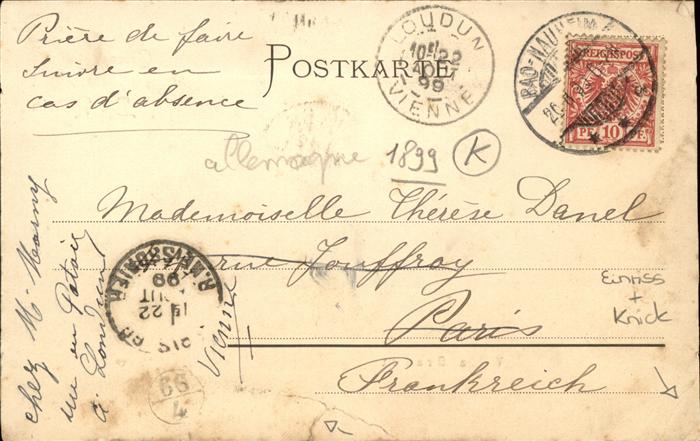 Prière de faire
suivre en
cas d'absence
POSTKARTE
LOUDUN
10E/22
99
VIENNE
BAD-NAUHEIM
REICHSPOST
PF 10 PF
allemagne
1899
K
Mademoiselle Thérèse Danel
rue Jouffroy
Paris
Frankreich
Einriss
+
Knick
chez M. Marny
rue du
à Loudun
Vienne
22
99